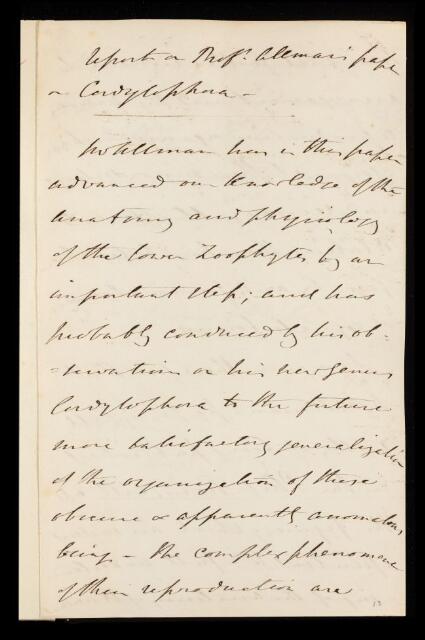 Report on Prof.r Allman's paper
on Cordylophora -
Mr Allman has in this paper
advanced our knowledge of the
anatomy and physiology
of the lower Zoophytes by an
important step; and has
probably conduced by his ob-
-servations on his new genus
Cordylophora to the future
more satisfactory generalization
of the organization of these
obscure & apparently anomalous
beings - the complex phenomena
of their reproduction are
13